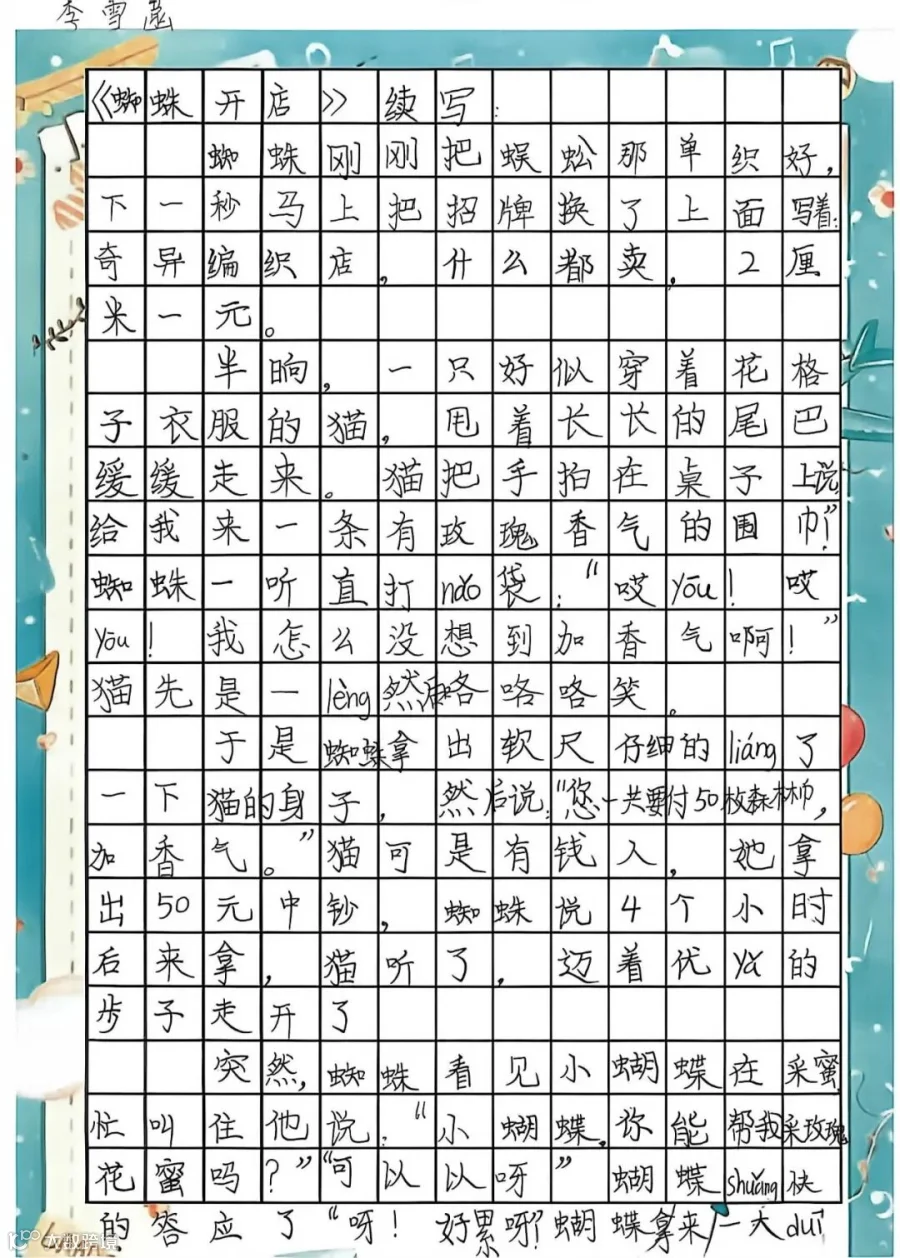 李雪
《蜘蛛开店》续写:
蜘蛛刚刚把蜈蚣那单织好,
下一秒马上把招牌换了上面写着:
奇异编织店,什么都卖,2厘
米一元。
半晌,一只好似穿着花格
子衣服的猫,甩着长长的尾巴
缓缓走来。猫把手拍在桌子上说,
给我来一条有玫瑰香气的围巾!”
蜘蛛一听直打nǎo袋:“哎yōu!哎
yōu!我怎么没想到加香气啊!”
猫先是一lèng然后咯咯咯笑。
于是蜘蛛拿出软尺仔细的liáng了
一下猫的身子,然后说:“您一共要付50枚森林币,
加香气。”猫可是有钱人,她拿
出50元中钞,蜘蛛说4个小时
后来拿,猫听了,迈着优yǎ的
步子走开了
突然,蜘蛛看见小蝴蝶在采蜜,
忙叫住他说:“小蝴蝶,你能帮我采玫瑰
花蜜吗?”“可以以呀”蝴蝶shuǎng快
的答应了“呀!好累呀?蝴蝶拿来一大duī
大数跨境